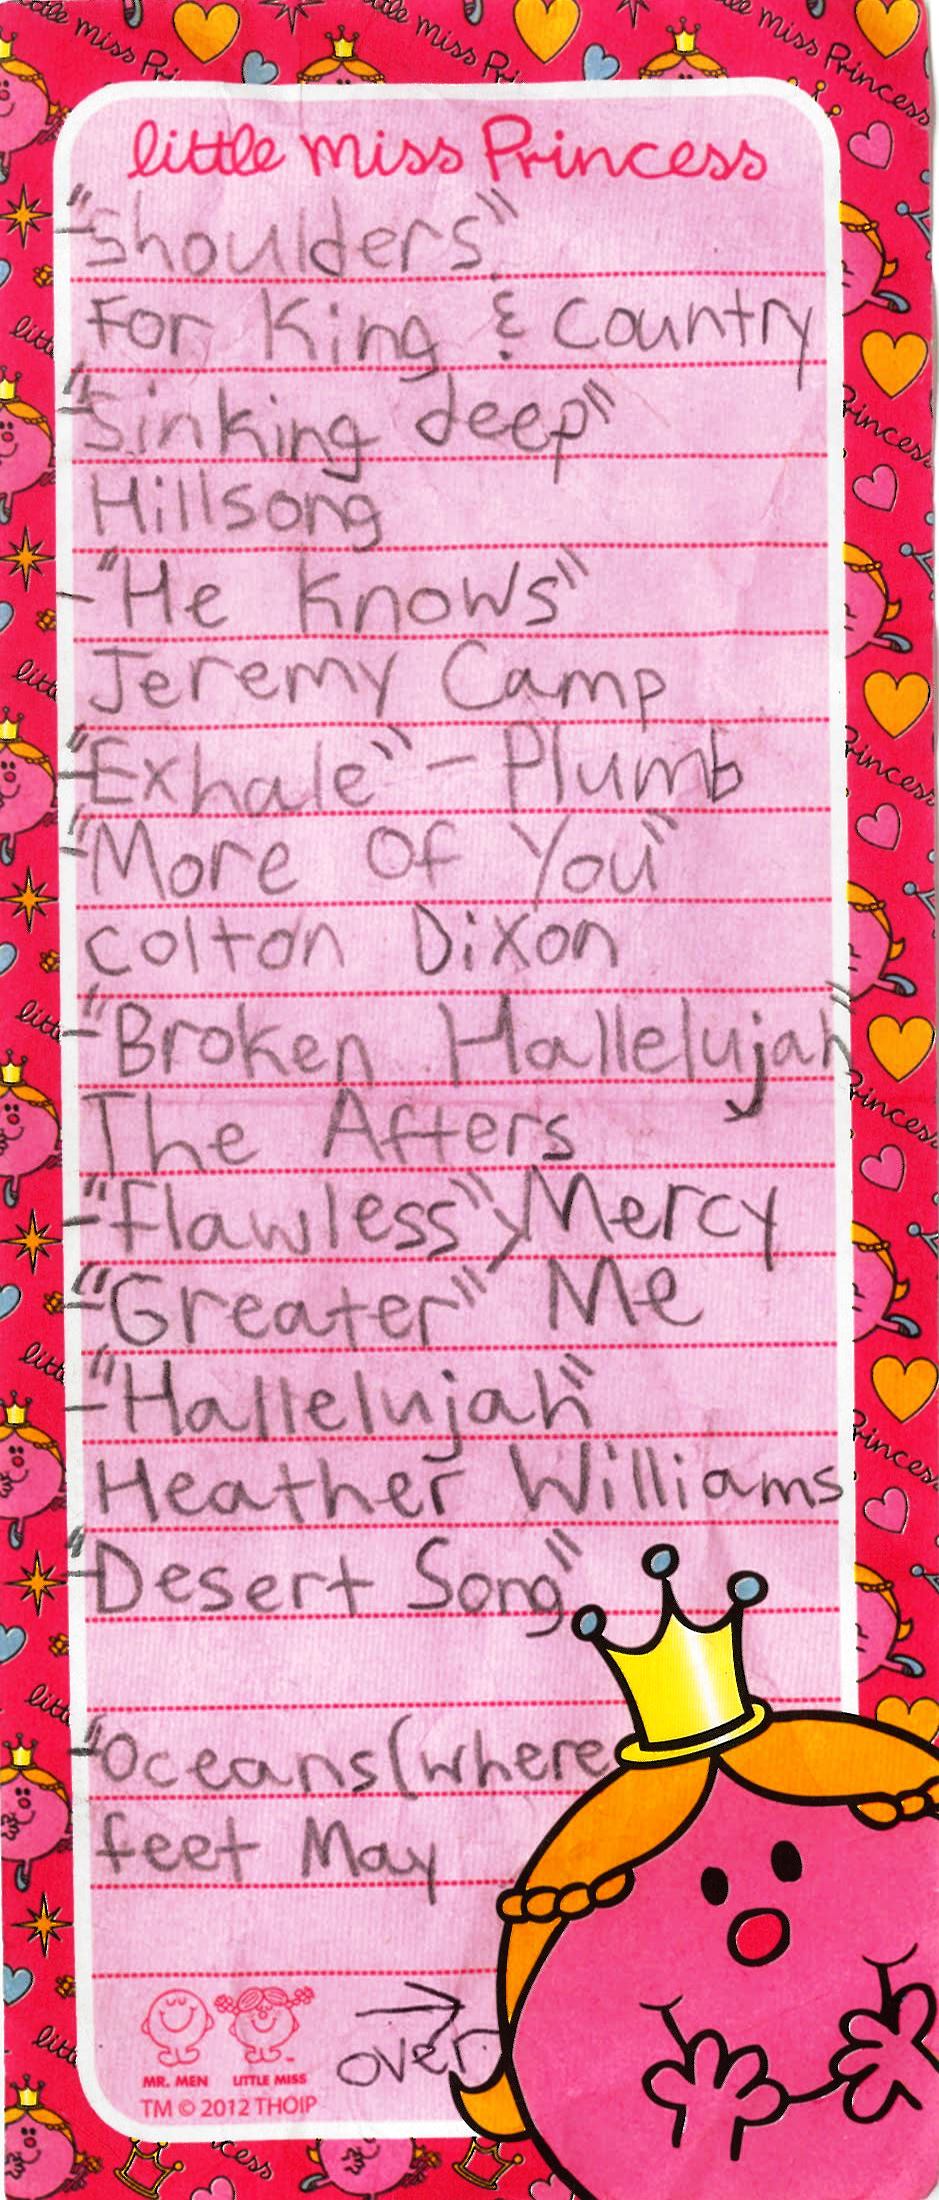 little miss Princess
- "Shoulders"
For King & Country
- "Sinking deep"
Hillsong
- "He Knows"
Jeremy Camp
- "Exhale" - Plumb
- "More Of You"
Colton Dixon
- "Broken Hallelujah"
The Afters
- "flawless" } Mercy
- "Greater" Me
- "Hallelujah"
Heather Williams
- "Desert Song"
- "Oceans (where
feet May
→
over
MR. MEN LITTLE MISS
TM © 2012 THOIP